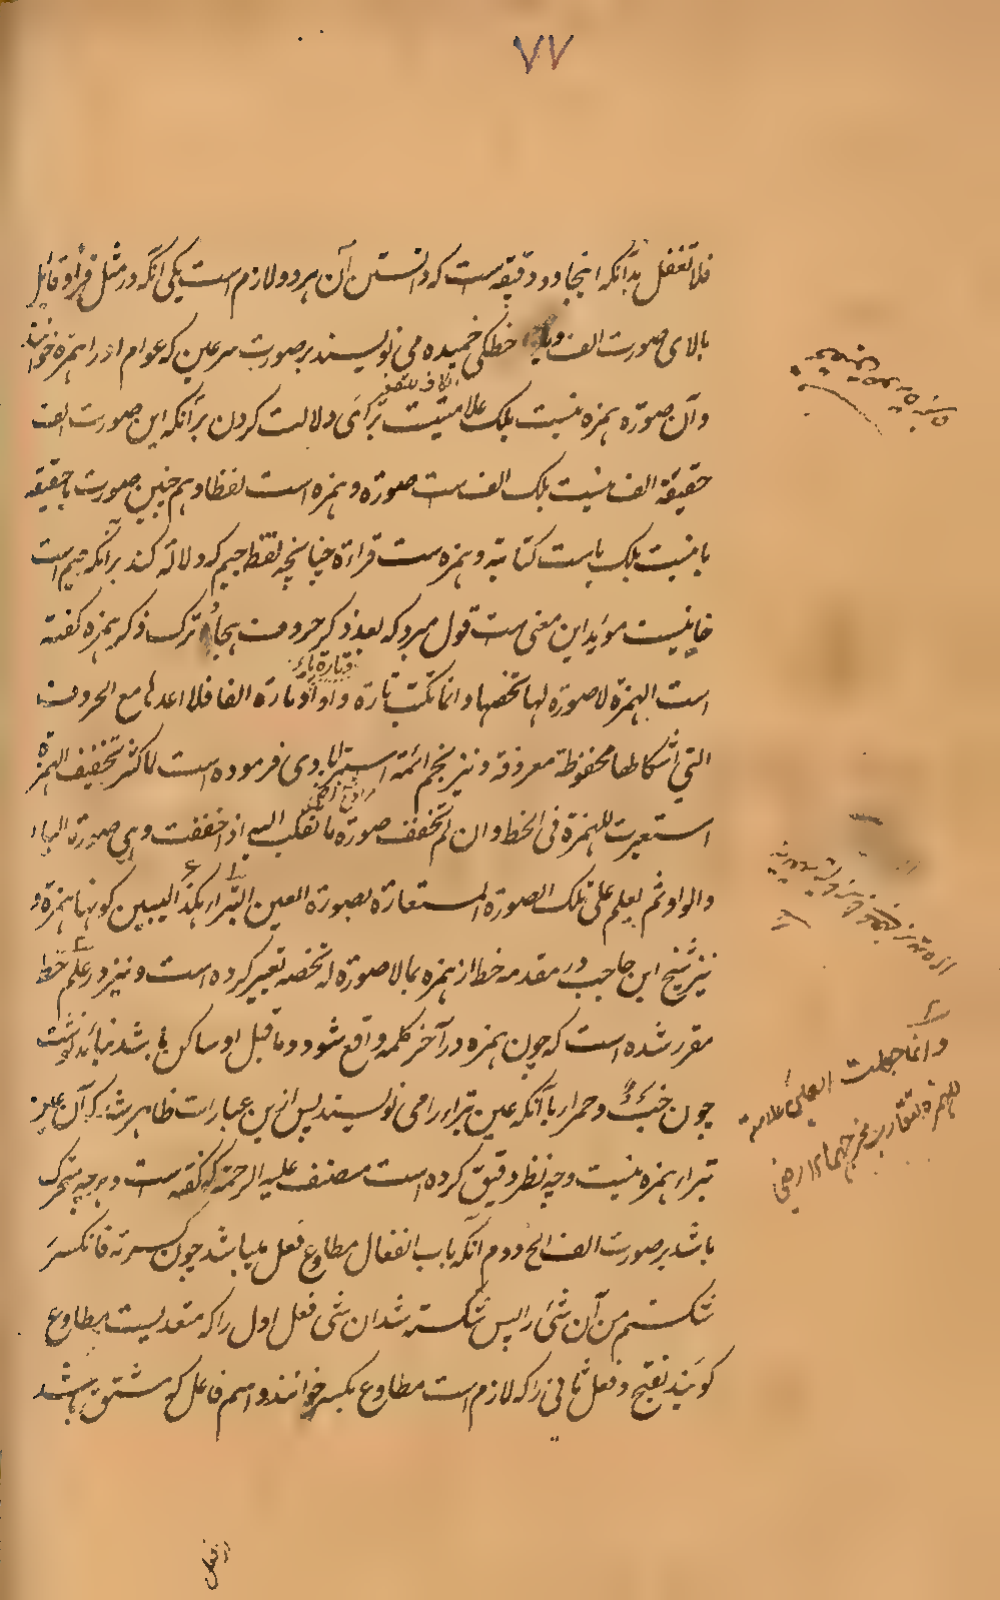 ٧٧
فلا تغفل بدانکه اینجا دو دقیقه است که دانستن آن هر دو لازم است یکی آنکه در مثل قرأ و قائل
بالای صورت الف و یا خطکی خمیده می نویسند بر صورت سر عین که عوام او را همزه خوانند
وآن صوره همزه نیست بلک علامتیست برای دلالت کردن برآنکه این صورت الف
حقیقة الف نیست بلک الف ست صورة و همزه است لفظا و هم چنین صورت یا حقیقه
یا نیست بلک یاست کتابة و همزه ست قراءة چنانچه نقط جیم که دلالة کند برآنکه جیم است
خا نیست موید این معنی ست قول مبرد که بعد ذکر حروف هجا و ترک ذکر همزه گفته
است الهمزة لا صورة لها تخصها وانما تکتب تارة واوا و تارة الفا فلا اعدها مع الحروف
التی اشکالها محفوظة معروفة و نیز نجم ائمه استرابادی فرموده است لما کثر تخفیف الهمزة
استعیرت للهمزة فی الخط وان لم تخفف صورة ما تقلب الیه اذا خففت وهی صورة الیاء
والواو ثم یعلم علی تلک الصورة المستعارة بصورة العین البتراء هکذا ء لیتبین کونها همزة و
نیز شیخ ابن حاجب در مقدمه خط از همزه بما لا صورة له تخصه تعبیر کرده است و نیز در علم خط
مقرر شده است که چون همزه در آخر کلمه واقع شود و ما قبل او ساکن باشد نباید نوشت
چون خبء و حمراء باآنکه عین بتراء را می نویسند پس ازین عبارات ظاهر شد که آن عین
بتراء همزه نیست وچه نظر دقیق کرده است مصنف علیه الرحمة که گفته است و هرچه متحرک
باشد بر صورت الف الخ دوم آنکه باب انفعال مطاوع فعل میباشد چون کسرته فانکسر
شکستم من آن شئ را پس شکسته شد ان شی فعل اول را که متعدیست مطاوع
گویند بفتح و فعل ثانی را که لازم است مطاوع بکسر خوانند و اسم فاعل کو مشتق باشد
وانما جعلت العین علامة
للهمزة لتقارب مخرجهما ١٢ رضی